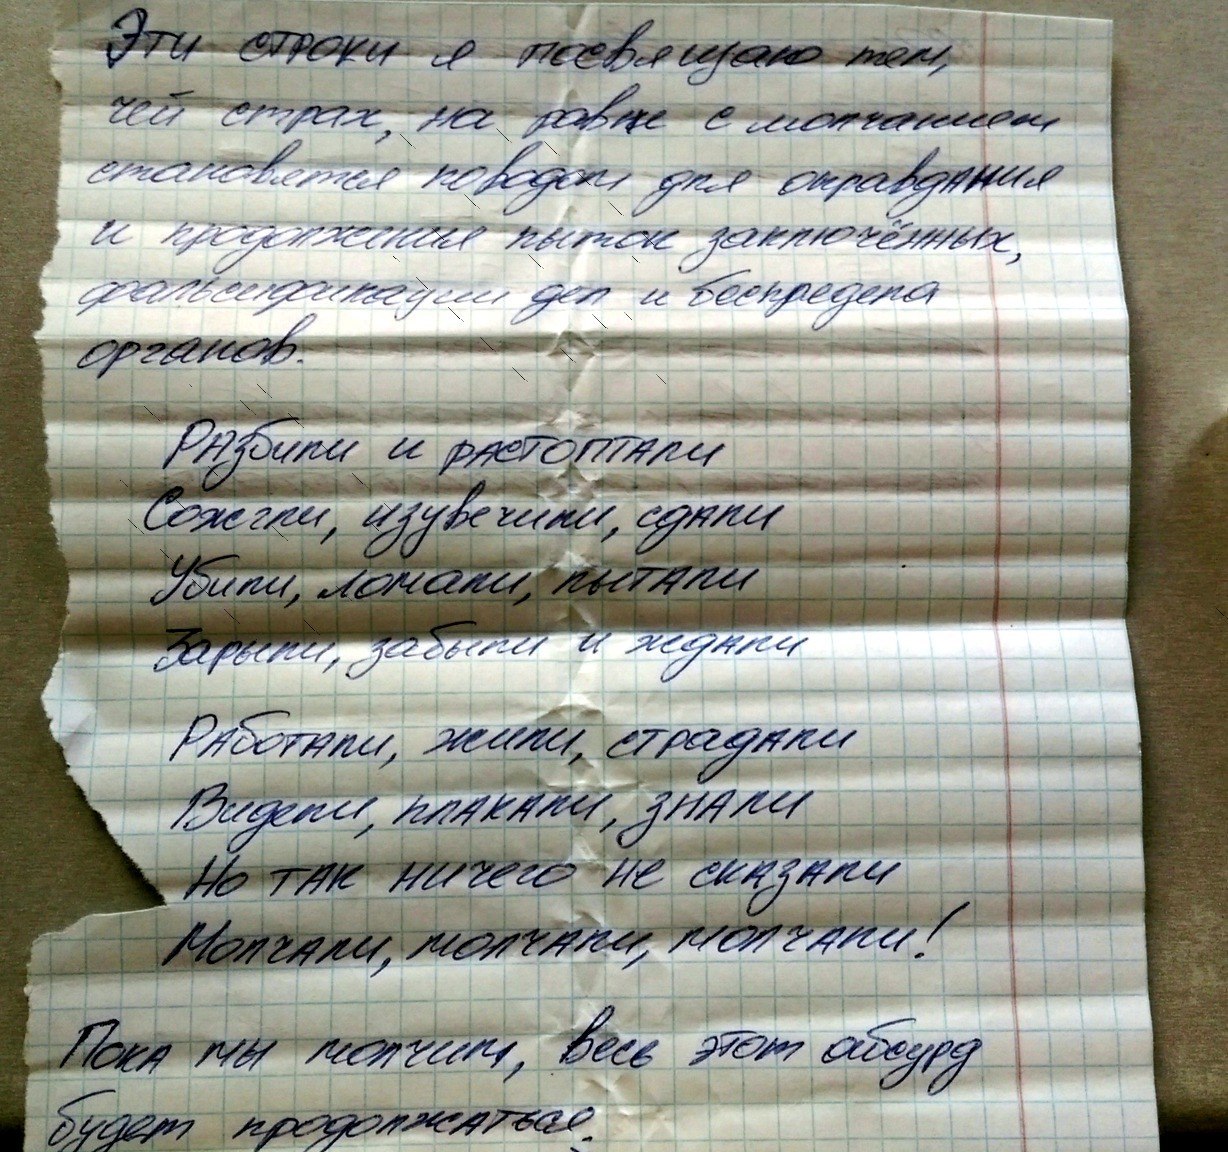 Эти строки я посвящаю тем,
чей страх, на равне с молчанием
становятся поводом для оправдания
и продолжения пыток заключённых,
фальсификации дел и беспредела
органов.
Разбили и растоптали
Сожгли, изувечили, сдали
Убили, ломали, пытали
Зарыли, забыли и ждали
Работали, жили, страдали
Видели, плакали, знали
Но так ничего не сказали
Молчали, молчали, молчали!
Пока мы молчим, весь этот абсурд
будет продолжаться.